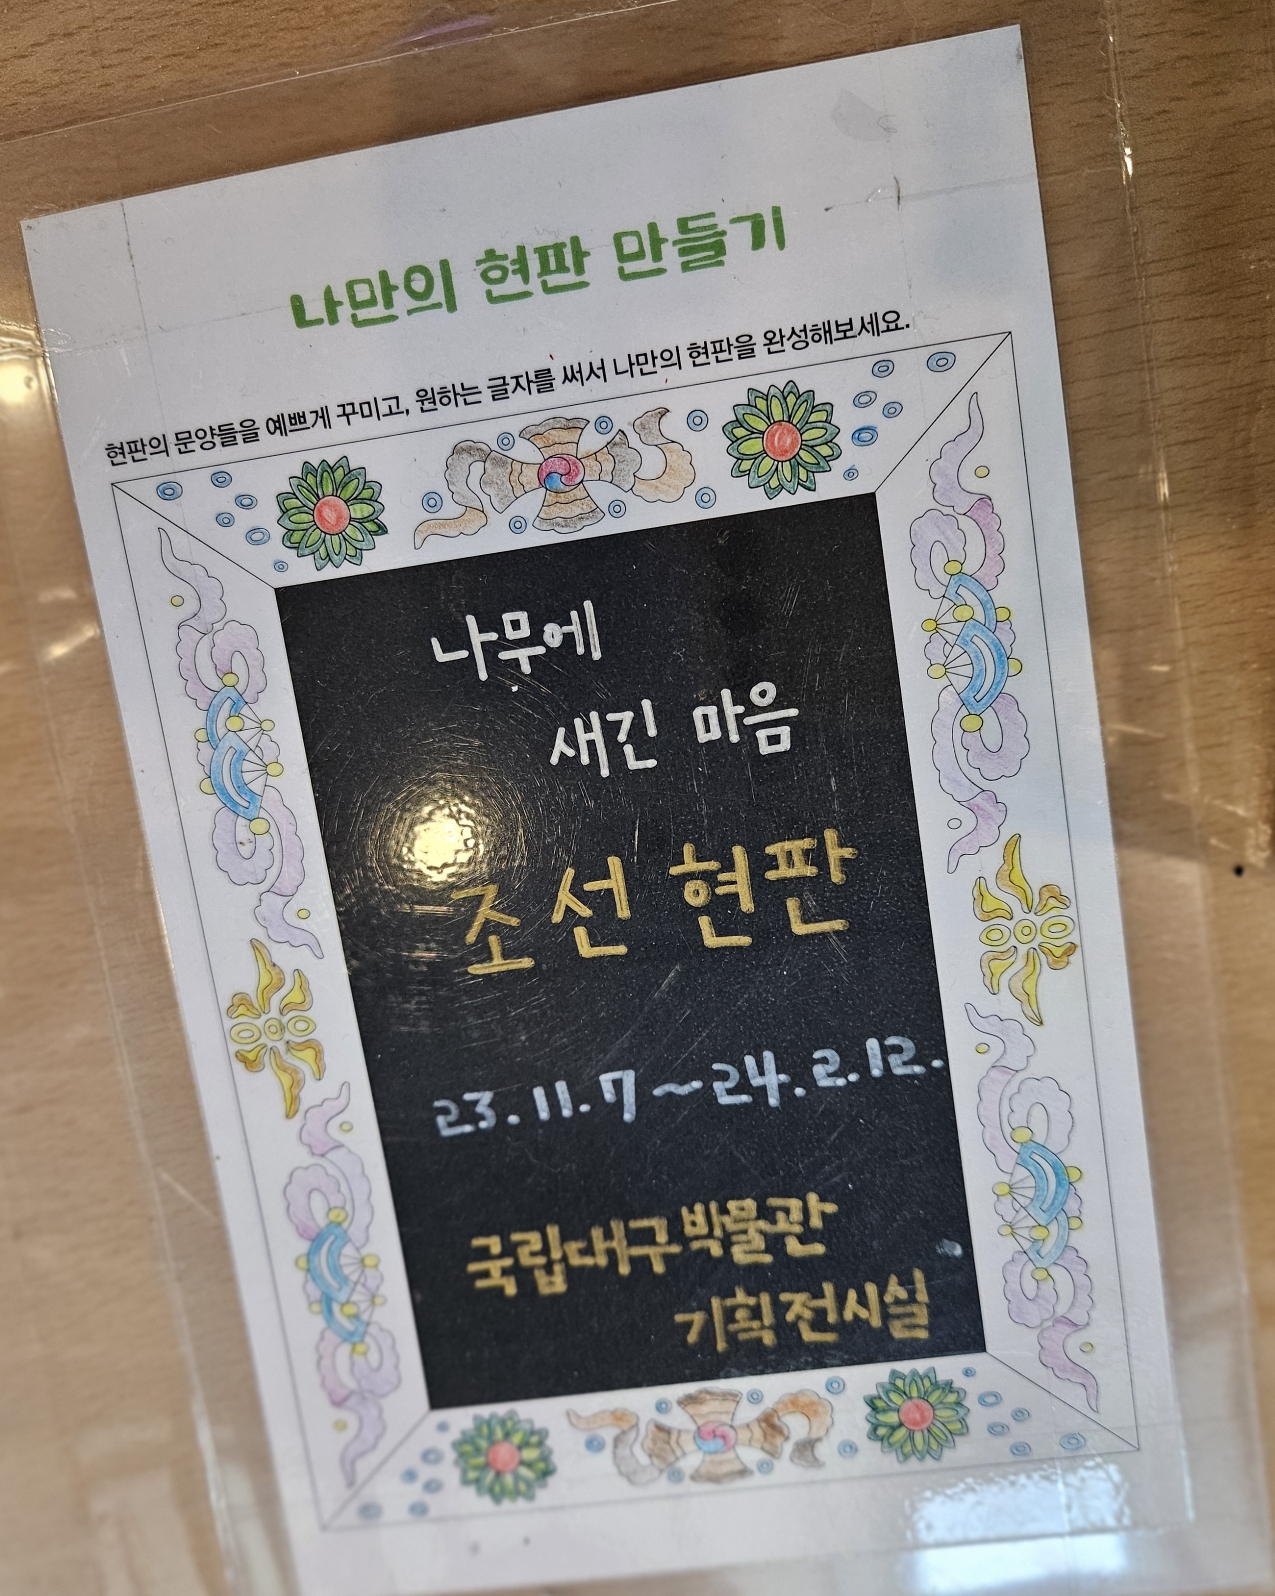 나만의 현판 만들기
현판의 문양들을 예쁘게 꾸미고, 원하는 글자를 써서 나만의 현판을 완성해보세요.
나무에
새긴 마음
조선 현판
23.11.7~24.2.12.
국립대구박물관
기획전시실